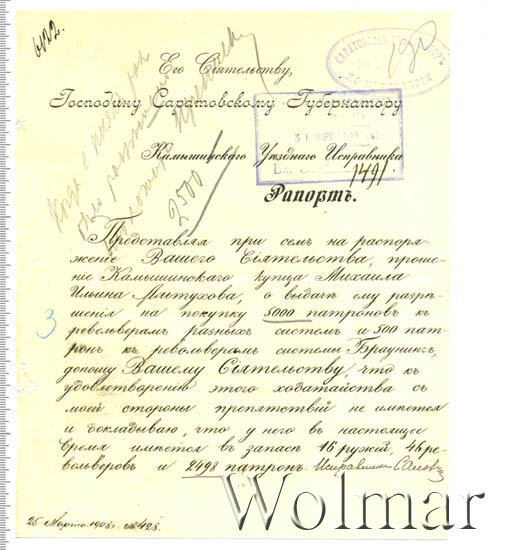 6122.
САРАТОВСКІЙ
Его Сіятельству,
Господину Саратовскому Губернатору
Камышинскаго Уѣзднаго Исправника
1491.
2500
Рапортъ.
Представляя при семъ на распоря-
женіе Вашего Сіятельства, проше-
ніе Камышинскаго купца Михаила
Ильина Алтухова, о выдачѣ ему разрѣ-
шенія на покупку 5000 патроновъ къ
револьверамъ разныхъ системъ и 500 пат-
ронъ къ револьверамъ системы Браунингъ,
доношу Вашему Сіятельству, что къ
удовлетворенію этого ходатайства съ
моей стороны препятствій не имѣется
и докладываю, что у него въ настоящее
время имѣется въ запасѣ 16 ружей, 46 ре-
вольверовъ и 2498 патронъ. Исправникъ
3
25 Марта 1908 г. № 428.
Wolmar